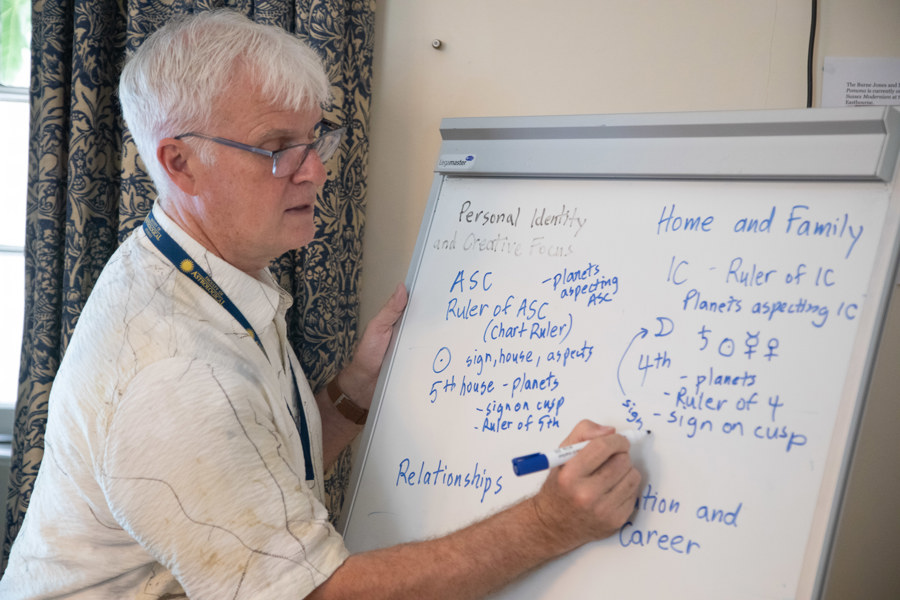 The Burne Jones and
Process is currently
Sussex Modernism at
Eastbourne.
Legamaster
Personal Identity
and Creative Focus
ASC
- planets
aspecting
ASC
Ruler of ASC
(chart Ruler)
☉ sign, house, aspects
5th house - planets
- sign on cusp
- Ruler of 5th
Relationships
Home and Family
IC - Ruler of IC
Planets aspecting IC
☽ ♄ ☉ ☿ ♀
4th
- planets
- Ruler of 4
- sign on cusp
sign
ation and
Career